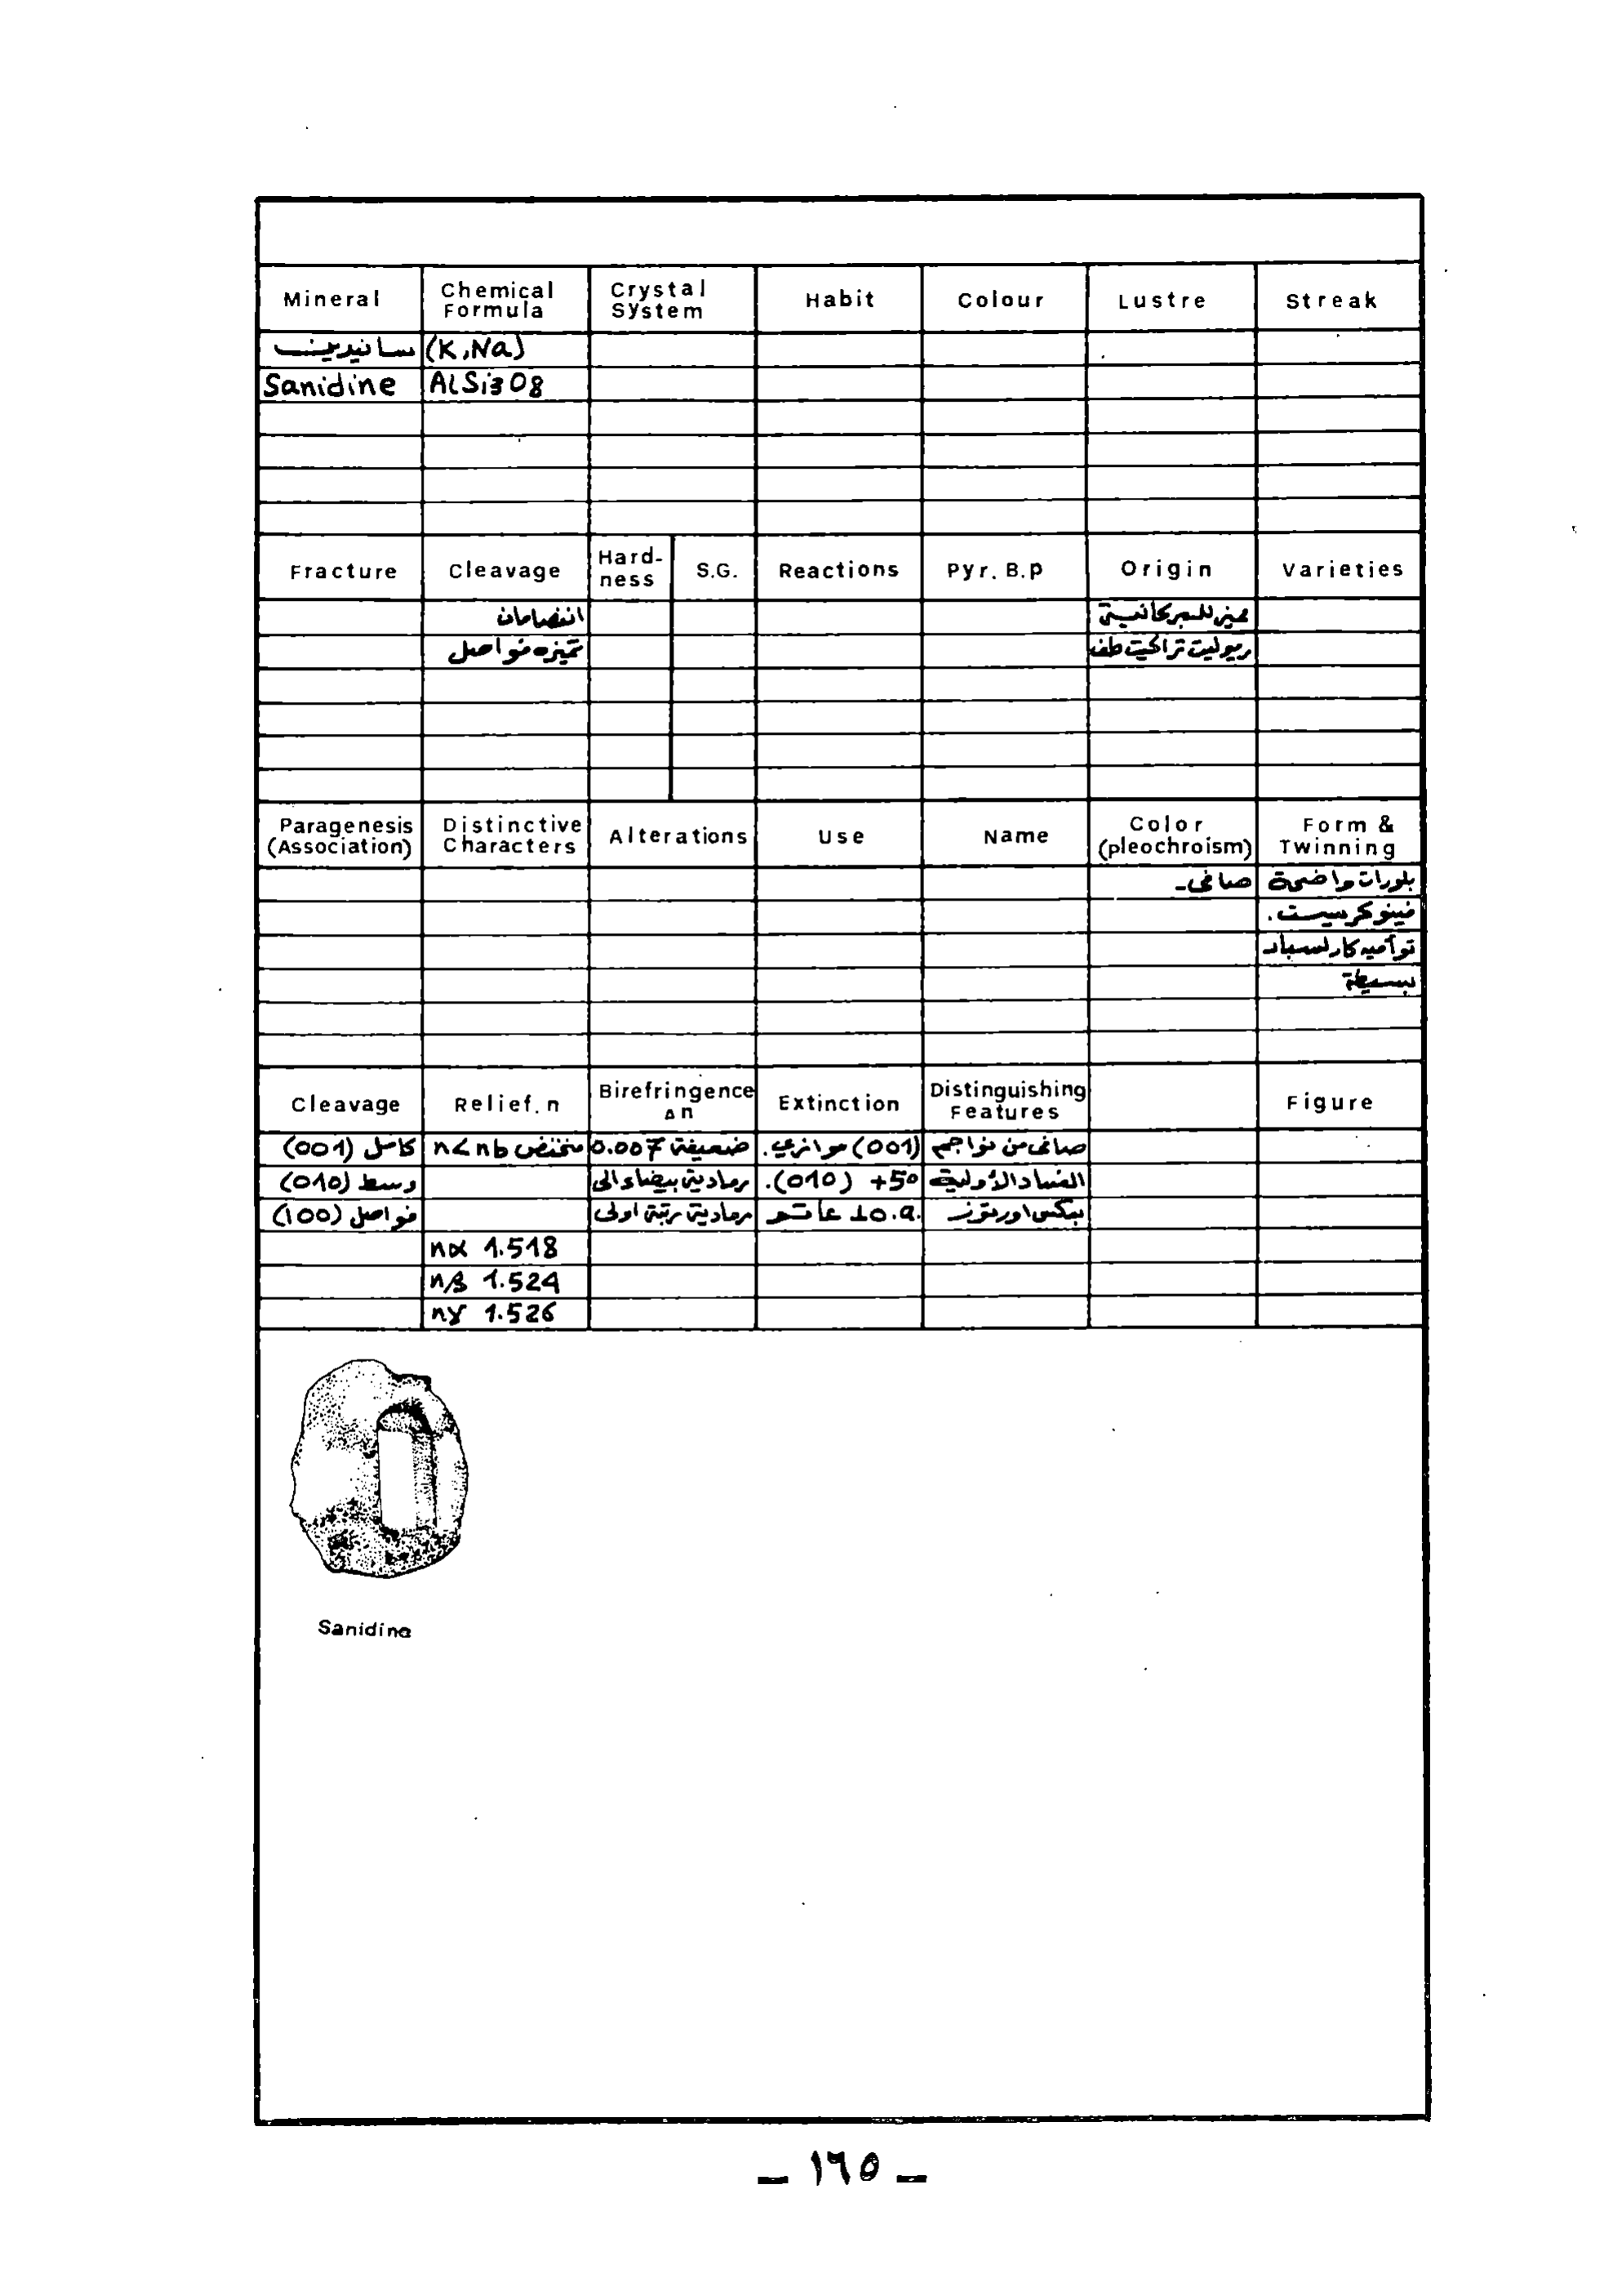 Mineral Chemical Formula Crystal System Habit Colour Lustre Streak
سانيدين (K,Na)
Sanidine AlSi3O8
Fracture Cleavage Hard-ness S.G. Reactions Pyr. B.p Origin Varieties
انفصامان مميز للبركانية
تميزه فواصل ريوليت تراكيت طف
Paragenesis (Association) Distinctive Characters Alterations Use Name Color (pleochroism) Form & Twinning
صافي - بلورات واضحة
فينوكريست.
توأمية كارلسباد
بسيطة
Cleavage Relief. n Birefringence Δn Extinction Distinguishing Features Figure
كامل (001) منخفض n<nb ضعيفة 0.007 (001) موازي. صافي من نواتج
وسط (010) رمادية بيضاء الى (010) +5° الفساد الأولية
فواصل (100) رمادية رتبة اولى ⊥o.a. بعكس اورتوز
nα 1.518
nβ 1.524
nγ 1.526
Sanidine
– ١٦٥ –